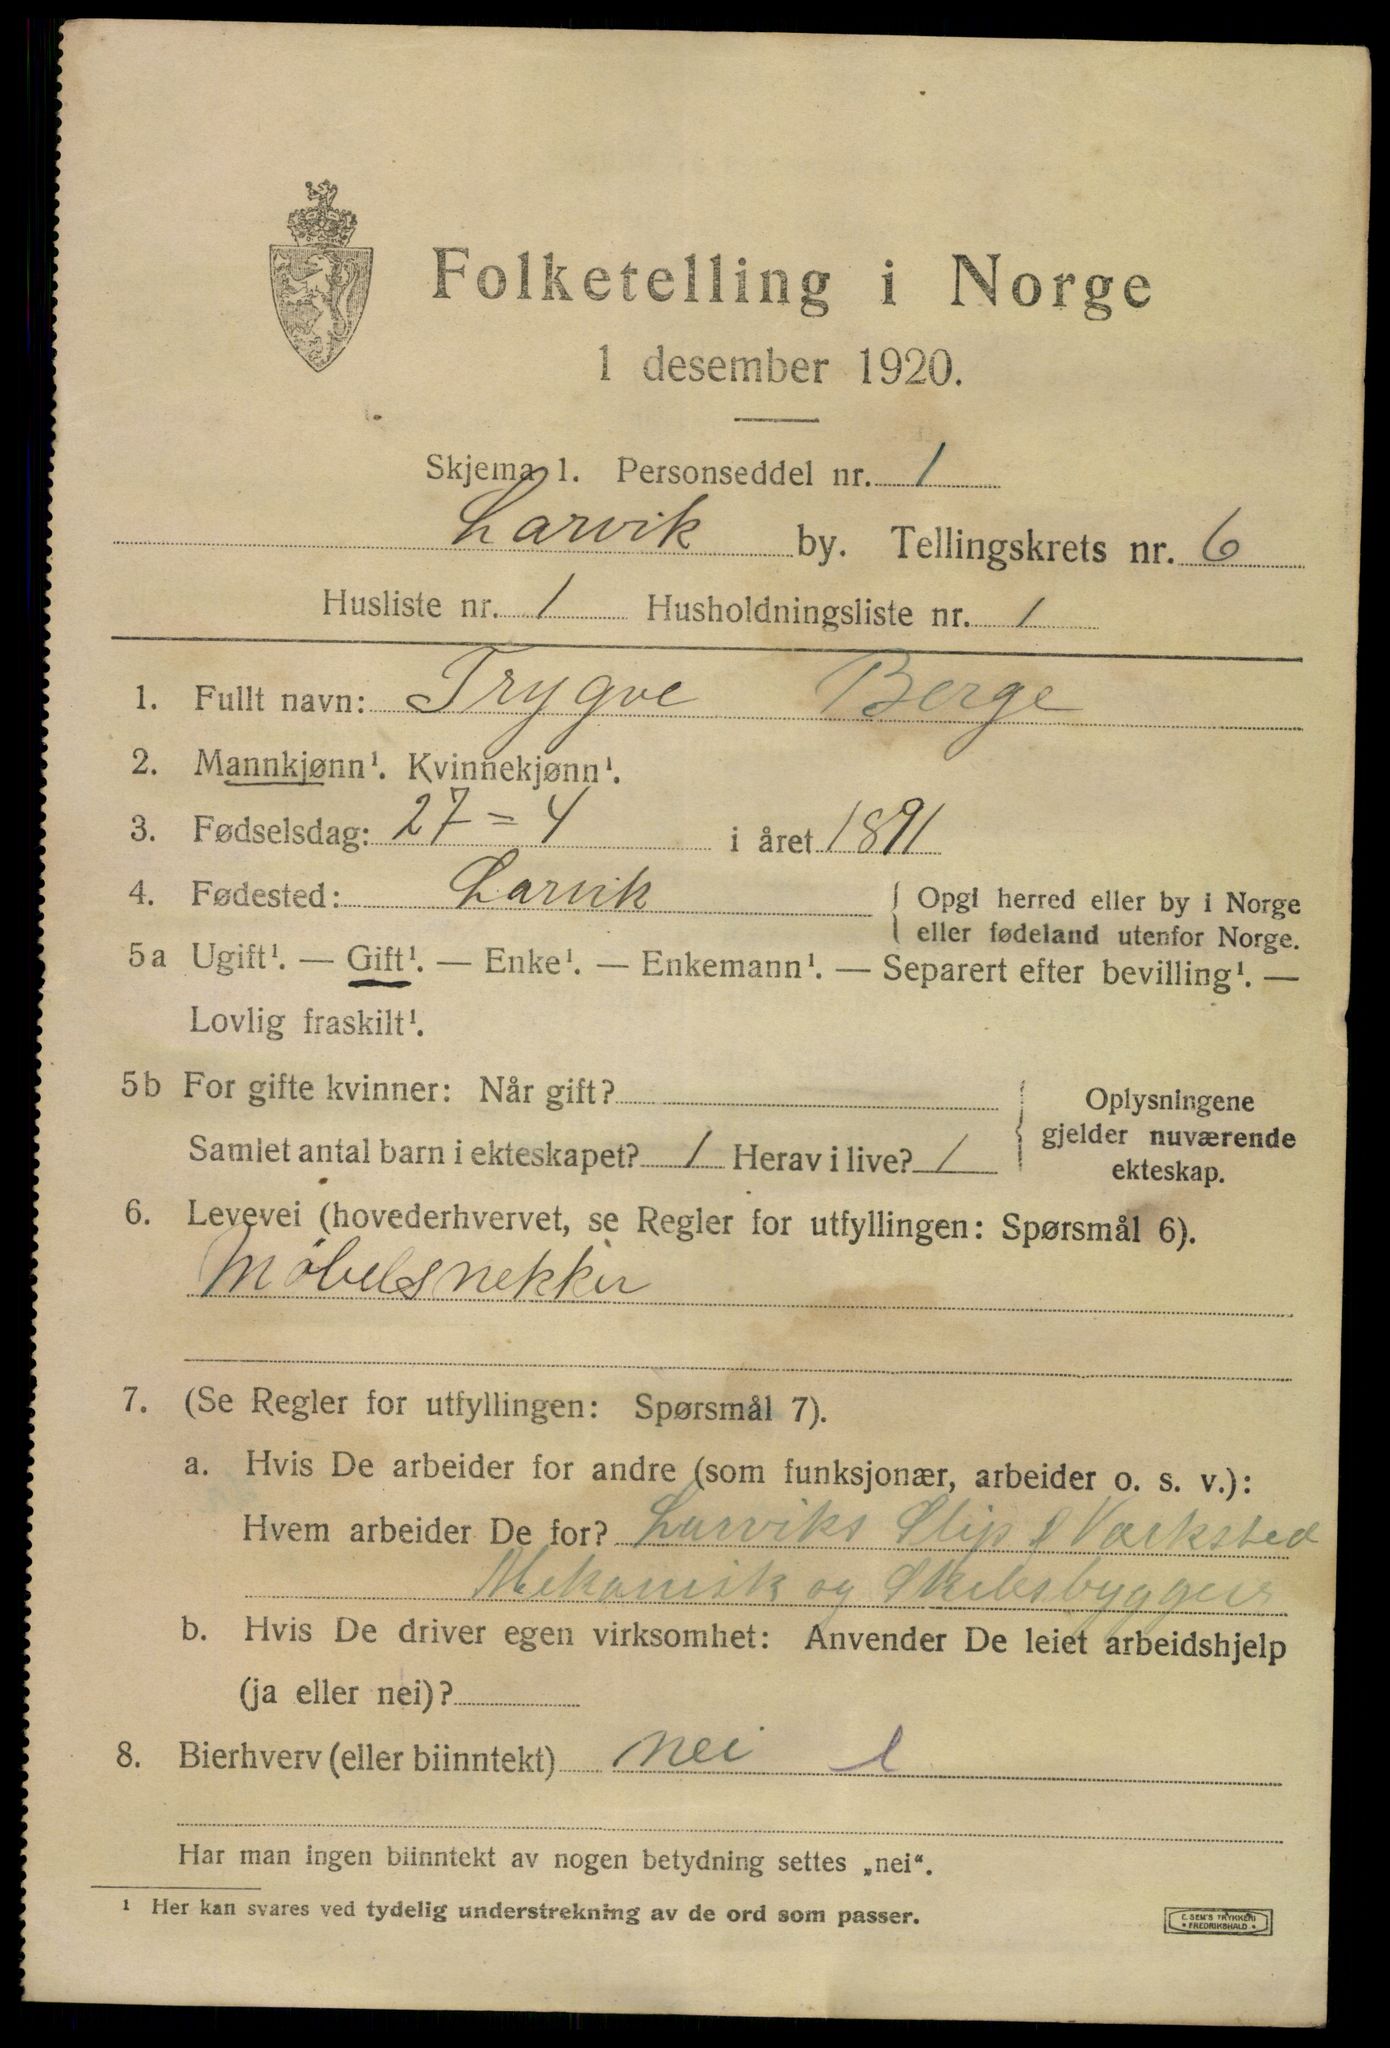 Folketelling i Norge
1 desember 1920.
Skjema 1. Personseddel nr. 1
Larvik by. Tellingskrets nr. 6
Husliste nr. 1 Husholdningsliste nr. 1
1. Fullt navn: Trygve Berge
2. Mannkjønn¹. Kvinnekjønn¹.
3. Fødselsdag: 27 = 4 i året 1891
4. Fødested: Larvik { Opgi herred eller by i Norge
eller fødeland utenfor Norge.
5a Ugift¹. — Gift¹. — Enke¹. — Enkemann¹. — Separert efter bevilling¹. —
Lovlig fraskilt¹.
5b For gifte kvinner: Når gift?
Samlet antal barn i ekteskapet? 1 Herav i live? 1
{ Oplysningene
gjelder nuværende
ekteskap.
6. Levevei (hovederhvervet, se Regler for utfyllingen: Spørsmål 6).
Möbelsnekker
7. (Se Regler for utfyllingen: Spørsmål 7).
a. Hvis De arbeider for andre (som funksjonær, arbeider o. s. v.):
Hvem arbeider De for? Larviks Slip & Værksted
Mekanisk og Skibsbyggeri
b. Hvis De driver egen virksomhet: Anvender De leiet arbeidshjelp
(ja eller nei)?
8. Bierhverv (eller biinntekt) nei
Har man ingen biinntekt av nogen betydning settes „nei“.
¹ Her kan svares ved tydelig understrekning av de ord som passer.
E. SEM'S TRYKKERI
• FREDRIKSHALD •